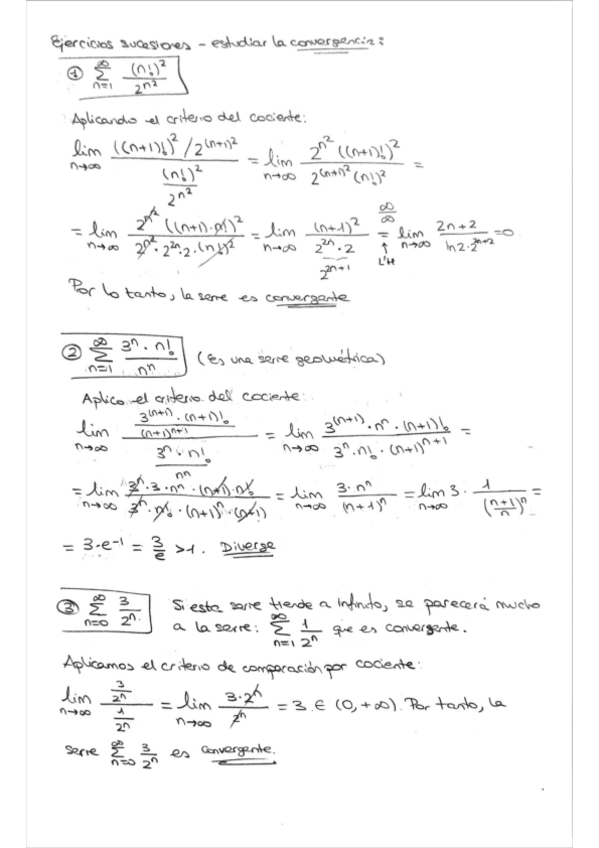 Ejercicios sucesiones - estudiar la convergencia:
① ∑_{n=1}^{∞} (n!)² / 2^{n²}
Aplicando el criterio del cociente:
lim_{n→∞} ( ((n+1)!)² / 2^{(n+1)²} ) / ( (n!)² / 2^{n²} ) = lim_{n→∞} ( 2^{n²} ((n+1)!)² ) / ( 2^{(n+1)²} (n!)² ) =
= lim_{n→∞} ( 2^{n²} ((n+1)·n!)² ) / ( 2^{n²}·2^{2n}·2·(n!)² ) = lim_{n→∞} (n+1)² / ( 2^{2n}·2 ) = lim_{n→∞} (2n+2) / ( ln2·2^{2n+2} ) = 0
2^{2n+1} ∞/∞ ↑ L'H
Por lo tanto, la serie es convergente
② ∑_{n=1}^{∞} 3ⁿ·n! / nⁿ (Es una serie geométrica)
Aplico el criterio del cociente:
lim_{n→∞} ( 3^{(n+1)}·(n+1)! / (n+1)^{n+1} ) / ( 3ⁿ·n! / nⁿ ) = lim_{n→∞} ( 3^{(n+1)}·nⁿ·(n+1)! ) / ( 3ⁿ·n!·(n+1)^{n+1} ) =
= lim_{n→∞} ( 3ⁿ·3·nⁿ·(n+1)·n! ) / ( 3ⁿ·n!·(n+1)ⁿ·(n+1) ) = lim_{n→∞} 3·nⁿ / (n+1)ⁿ = lim_{n→∞} 3· 1 / ((n+1)/n)ⁿ =
= 3·e⁻¹ = 3/e >1. Diverge
③ ∑_{n=0}^{∞} 3/2ⁿ Si esta serie tiende a infinito, se parecerá mucho
a la serie: ∑_{n=1}^{∞} 1/2ⁿ que es convergente.
Aplicamos el criterio de comparación por cociente:
lim_{n→∞} (3/2ⁿ) / (1/2ⁿ) = lim_{n→∞} 3·2ⁿ / 2ⁿ = 3 ∈ (0,+∞). Por tanto, la
serie ∑_{n=0}^{∞} 3/2ⁿ es convergente.